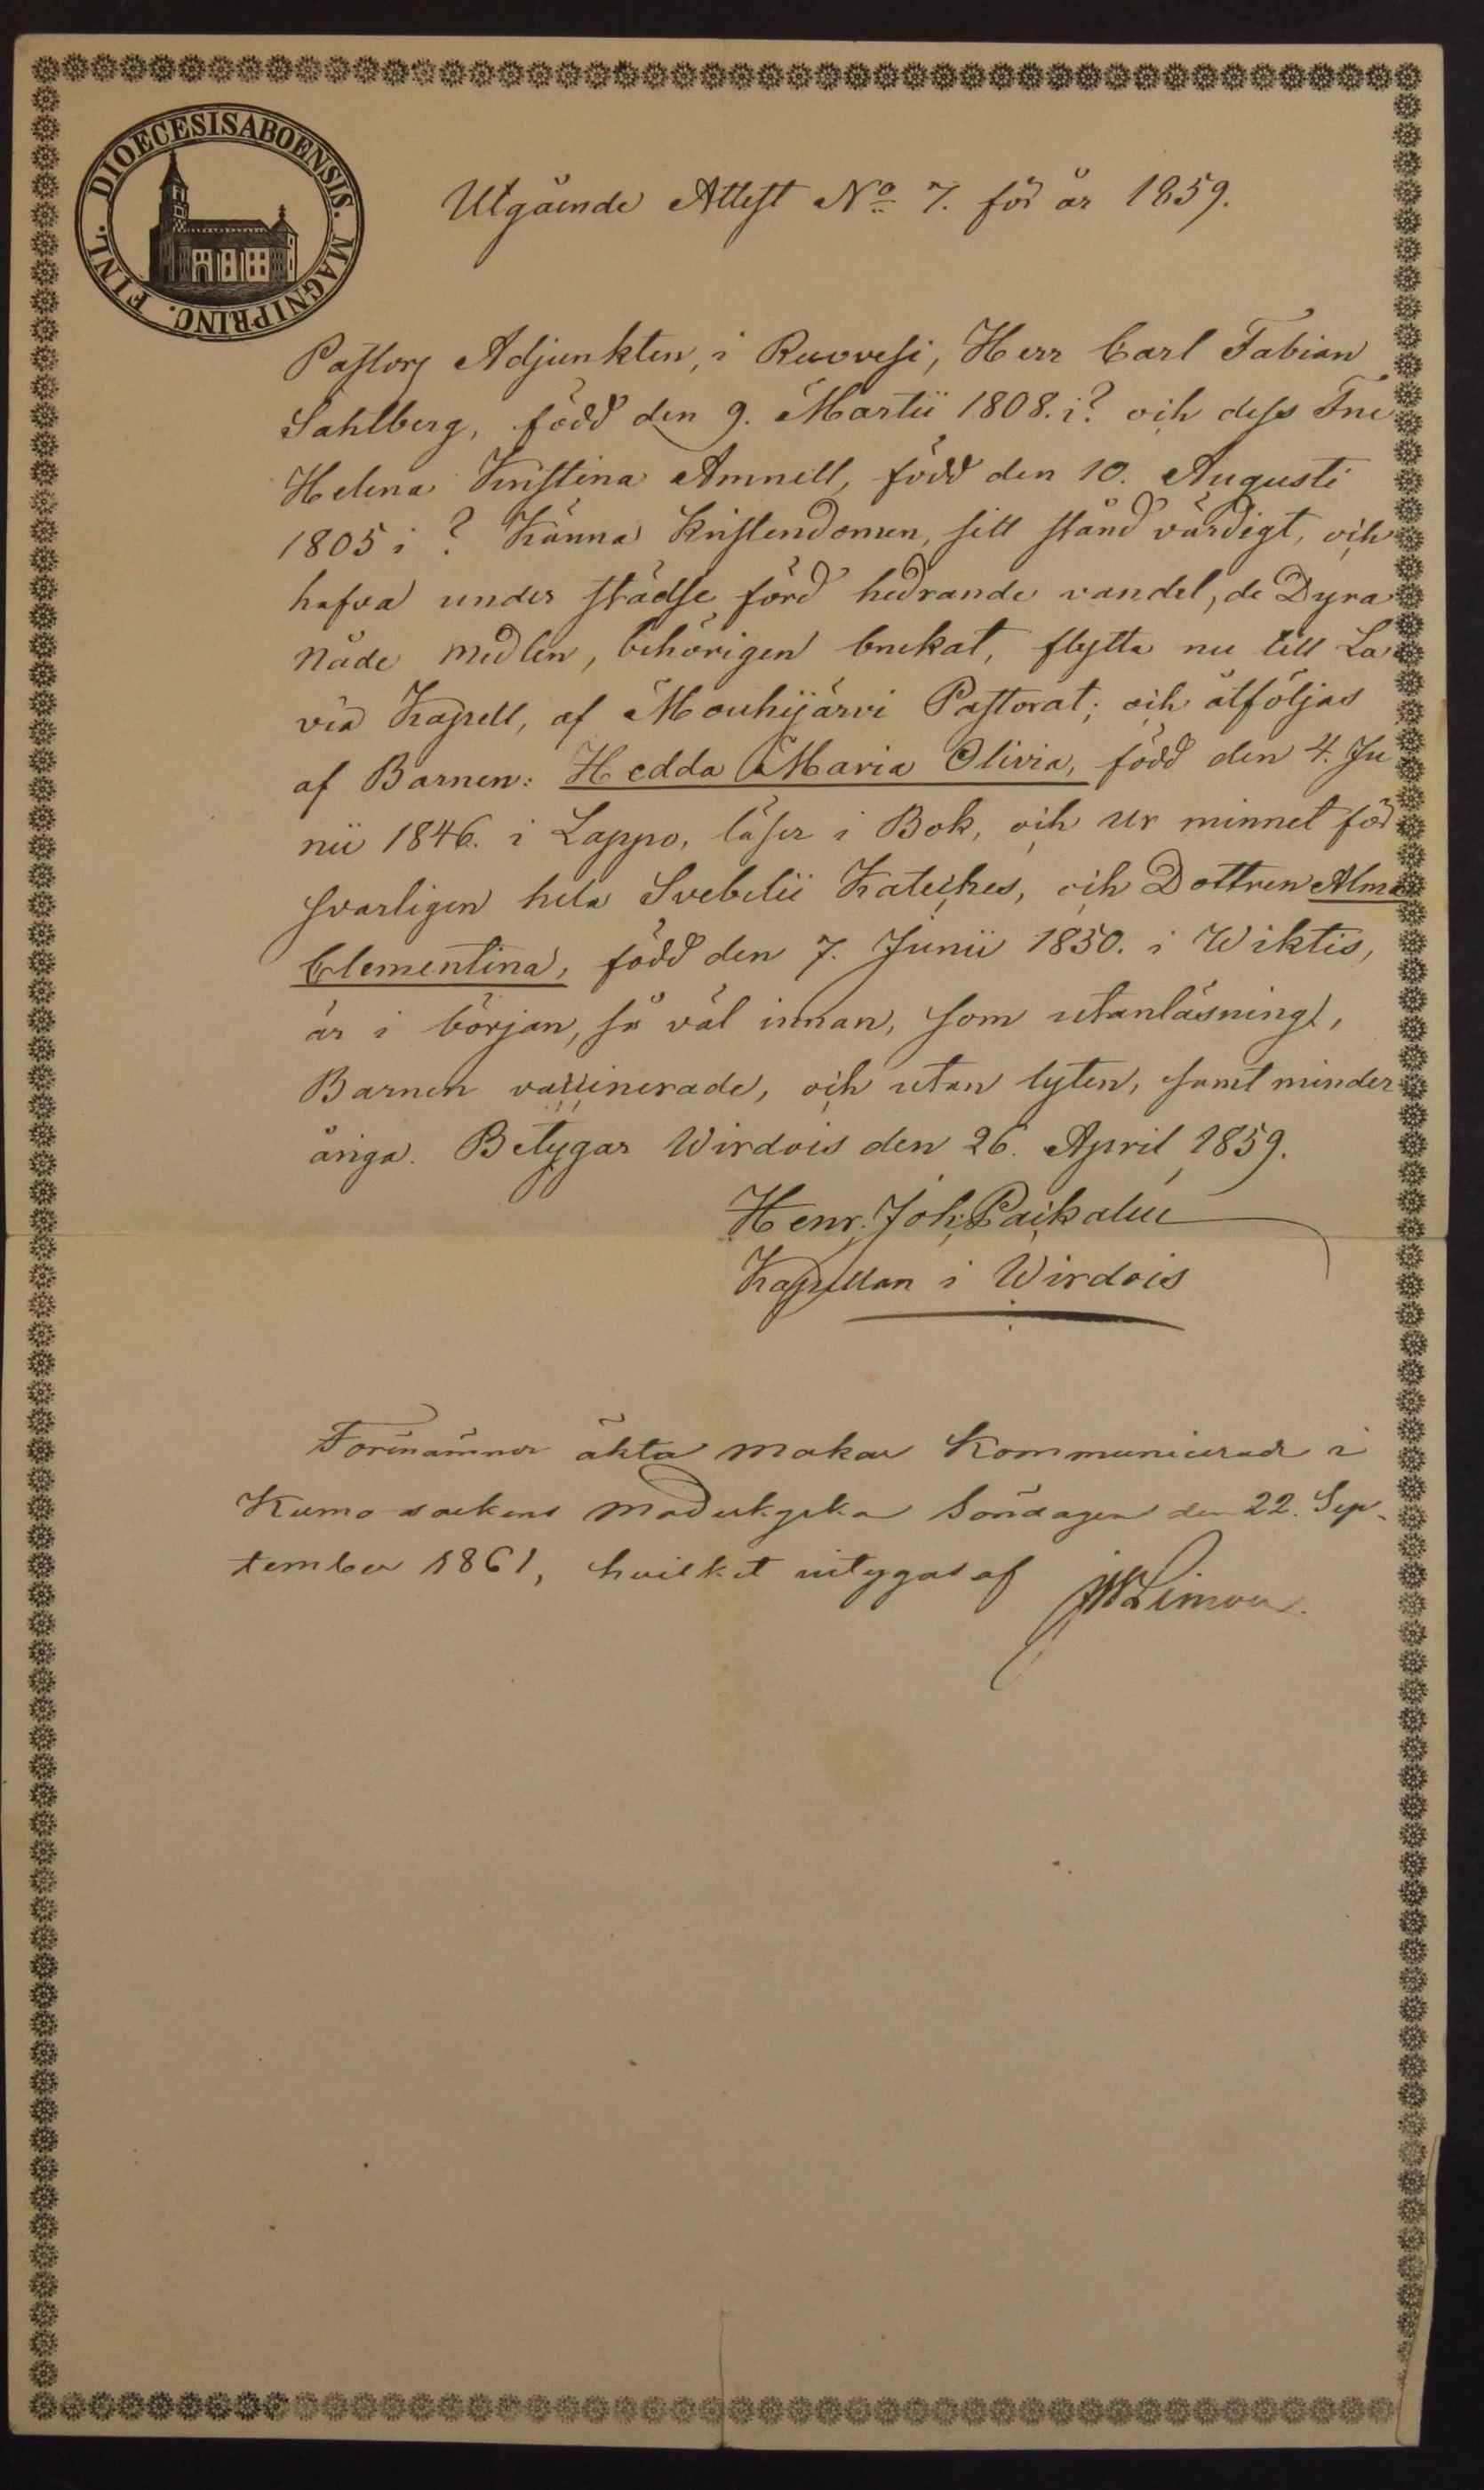 DIOECESIS ABOENSIS. MAGNI PRINC. FINL.
Utgående Attest No 7. för år 1859.
Pastors Adjunkten, i Ruovesi, Herr Carl Fabian
Sahlberg, född den 9. Martii 1808. i? och dess Fru
Helena Kristina Amnell, född den 10. Augusti
1805 i? Känna Kristendomen, sitt stånd värdigt, och
hafva under städse förd hedrande vandel, de Dyra
Nåde medlen, behörigen brukat, flytta nu till La
via Kapell, af Mouhijärvi Pastorat; och åtföljas
af Barnen: Hedda Maria Olivia, född den 4. Ju
nii 1846. i Lappo, läser i Bok, och ur minnet för
svarligen hela Svebelii Kateches, och Dottren Alma
Clementina, född den 7. Junii 1850. i Wiktis,
är i början, så väl innan, som utanläsning,
Barnen vaccinerade, och utan lyten, samt minder
åriga. Betygar Wirdois den 26. April 1859.
Henr. Joh. Paikalin
Kapellan i Wirdois
Förenämnde äkta makar kommunicerade i
Kumo sockens moderkyrka Söndagen den 22. Sep-
tember 1861, hvilket intygas af